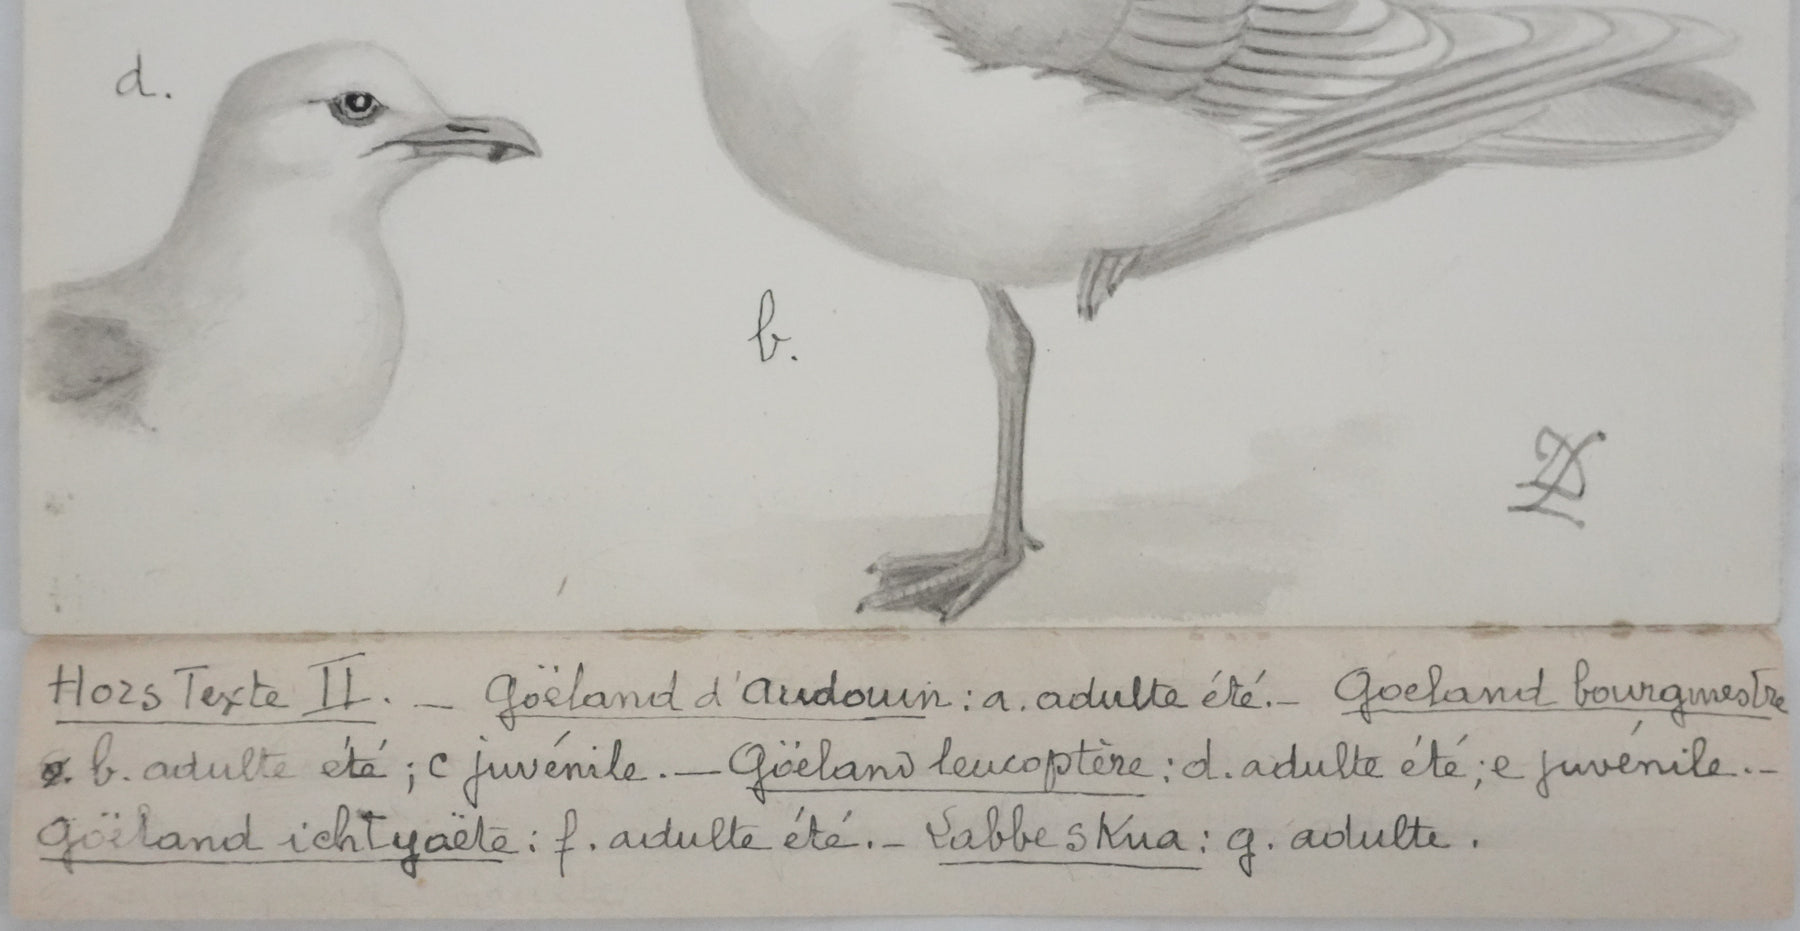 d.
b.
Hors Texte II. — Goëland d'Audouin : a. adulte été. – Goeland bourgmestre
b. adulte été ; c juvénile. — Goëland leucoptère : d. adulte été ; e juvénile. –
Goëland ichtyaëte : f. adulte été. – Labbe sKua : g. adulte.